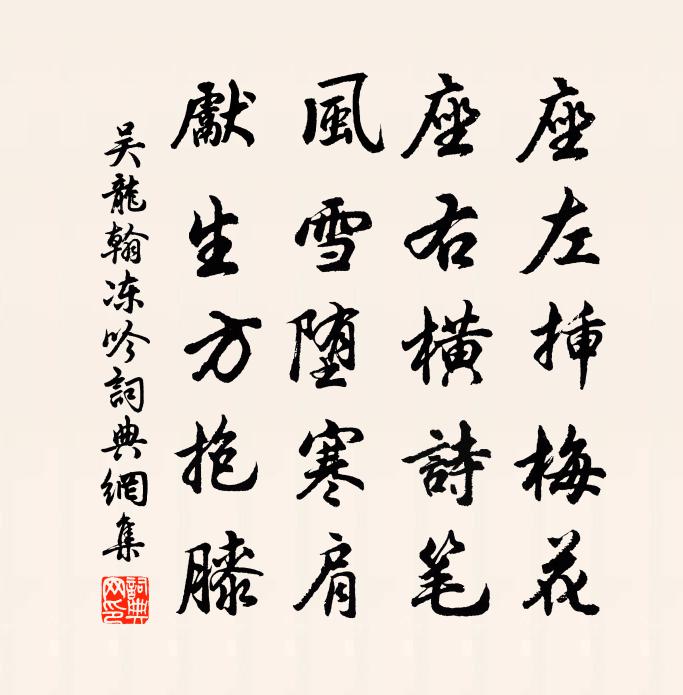 座左揷梅花
座右橫詩笔
風雪堕寒肩
獻生方抱膝
吴龍翰冻吟詞典網集
詞典
网印